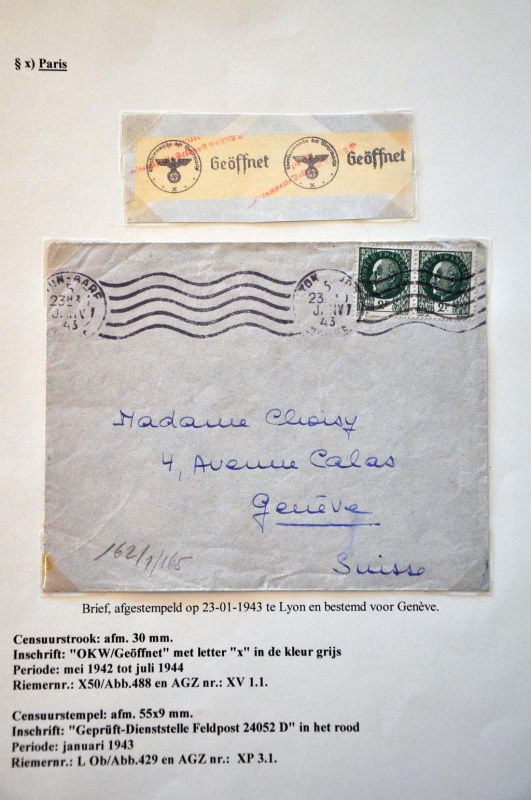 § x) Paris
Geöffnet Geöffnet
x x
LYON-GARE
5
23
JANV
43
LYON GARE
5
23
JANV
43
2F 2F
Madame Choisy
4, Avenue Calas
Genève
Suisse
162/1/165
Brief, afgestempeld op 23-01-1943 te Lyon en bestemd voor Genève.
Censuurstrook: afm. 30 mm.
Inschrift: "OKW/Geöffnet" met letter "x" in de kleur grijs
Periode: mei 1942 tot juli 1944
Riemernr.: X50/Abb.488 en AGZ nr.: XV 1.1.
Censuurstempel: afm. 55x9 mm.
Inschrift: "Geprüft-Dienststelle Feldpost 24052 D" in het rood
Periode: januari 1943
Riemernr.: L Ob/Abb.429 en AGZ nr.: XP 3.1.